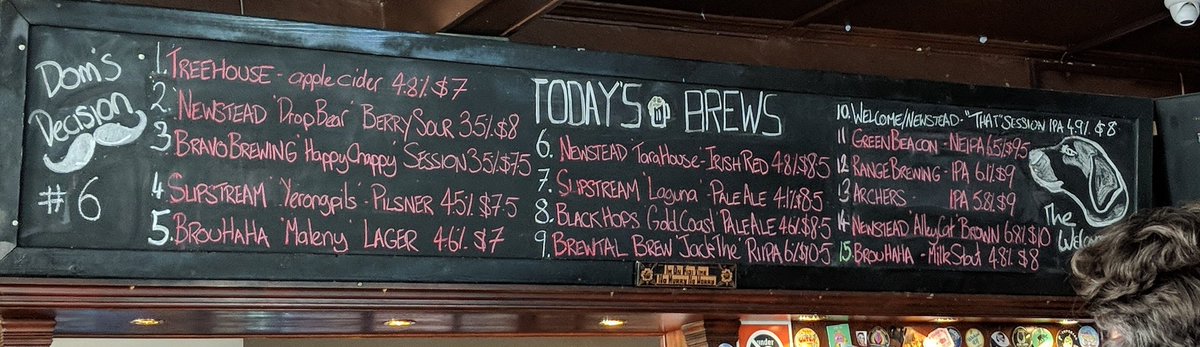 Dom's
Decision
# 6
1. TREEHOUSE - apple cider 4.8% $7
2. NEWSTEAD 'Drop Bear' BERRY SOUR 3.5% $8
3. BRAVO BREWING 'Happy Chappy' SESSION 3.5% $7.5
4. SLIPSTREAM 'Yerongpils' - PILSNER 4.5% $7.5
5. BROUHAHA 'Maleny' LAGER 4.6% $7
TODAY'S BREWS
6. NEWSTEAD 'Tara House' - IRISH RED 4.8% $8.5
7. SLIPSTREAM 'Laguna' PALE ALE 4.1% $8.5
8. BLACK HOPS 'Gold Coast' PALE ALE 4.6% $8.5
9. BREWTAL BREW 'Jack The' RIIPA 6% $10.5
10. WELCOME/NEWSTEAD - "THAT" SESSION IPA 4.9% $8
11 GREEN BEACON - NEIPA 6.5% $9.5
12 RANGE BREWING - IPA 6.1% $9
13 ARCHERS - IPA 5.8% $9
14 NEWSTEAD 'Alley Cat' BROWN 6.8% $10
15. BROUHAHA - Milk Stout 4.8% $8
The
under